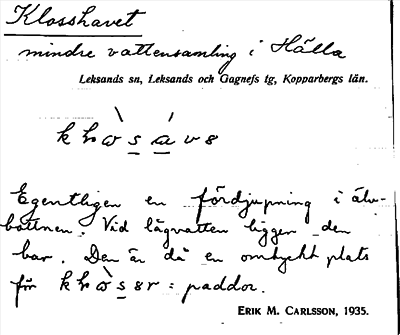 Klosshavet
mindre vattensamling i Hälla
Leksands sn, Leksands och Gagnefs tg, Kopparbergs län.
Egentligen en fördjupning i älv-
bottnen. Vid lågvatten ligger den
bar. Den är då en omtyckt plats
för : paddor.
ERIK M. CARLSSON, 1935.